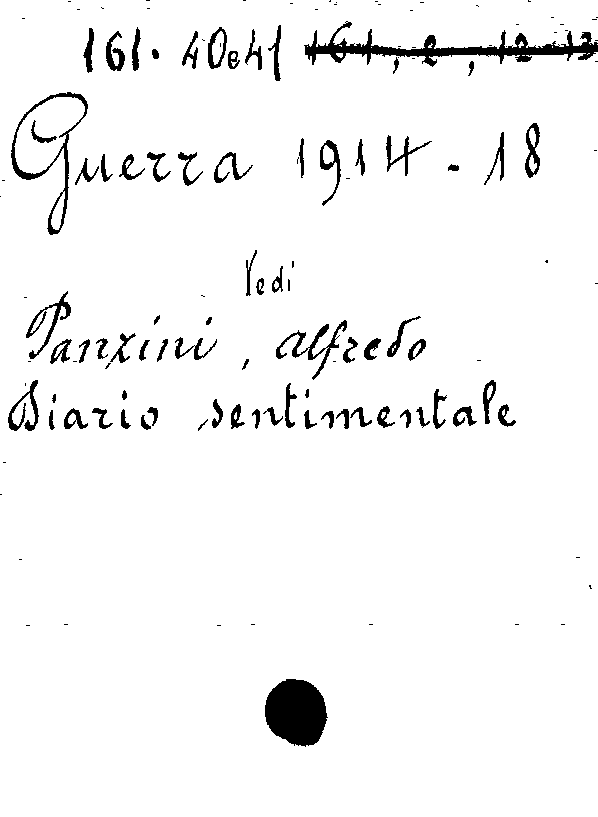 161. 40e41 161, 2, 12-13
Guerra 1914-18
Vedi
Panzini, Alfredo
Diario sentimentale